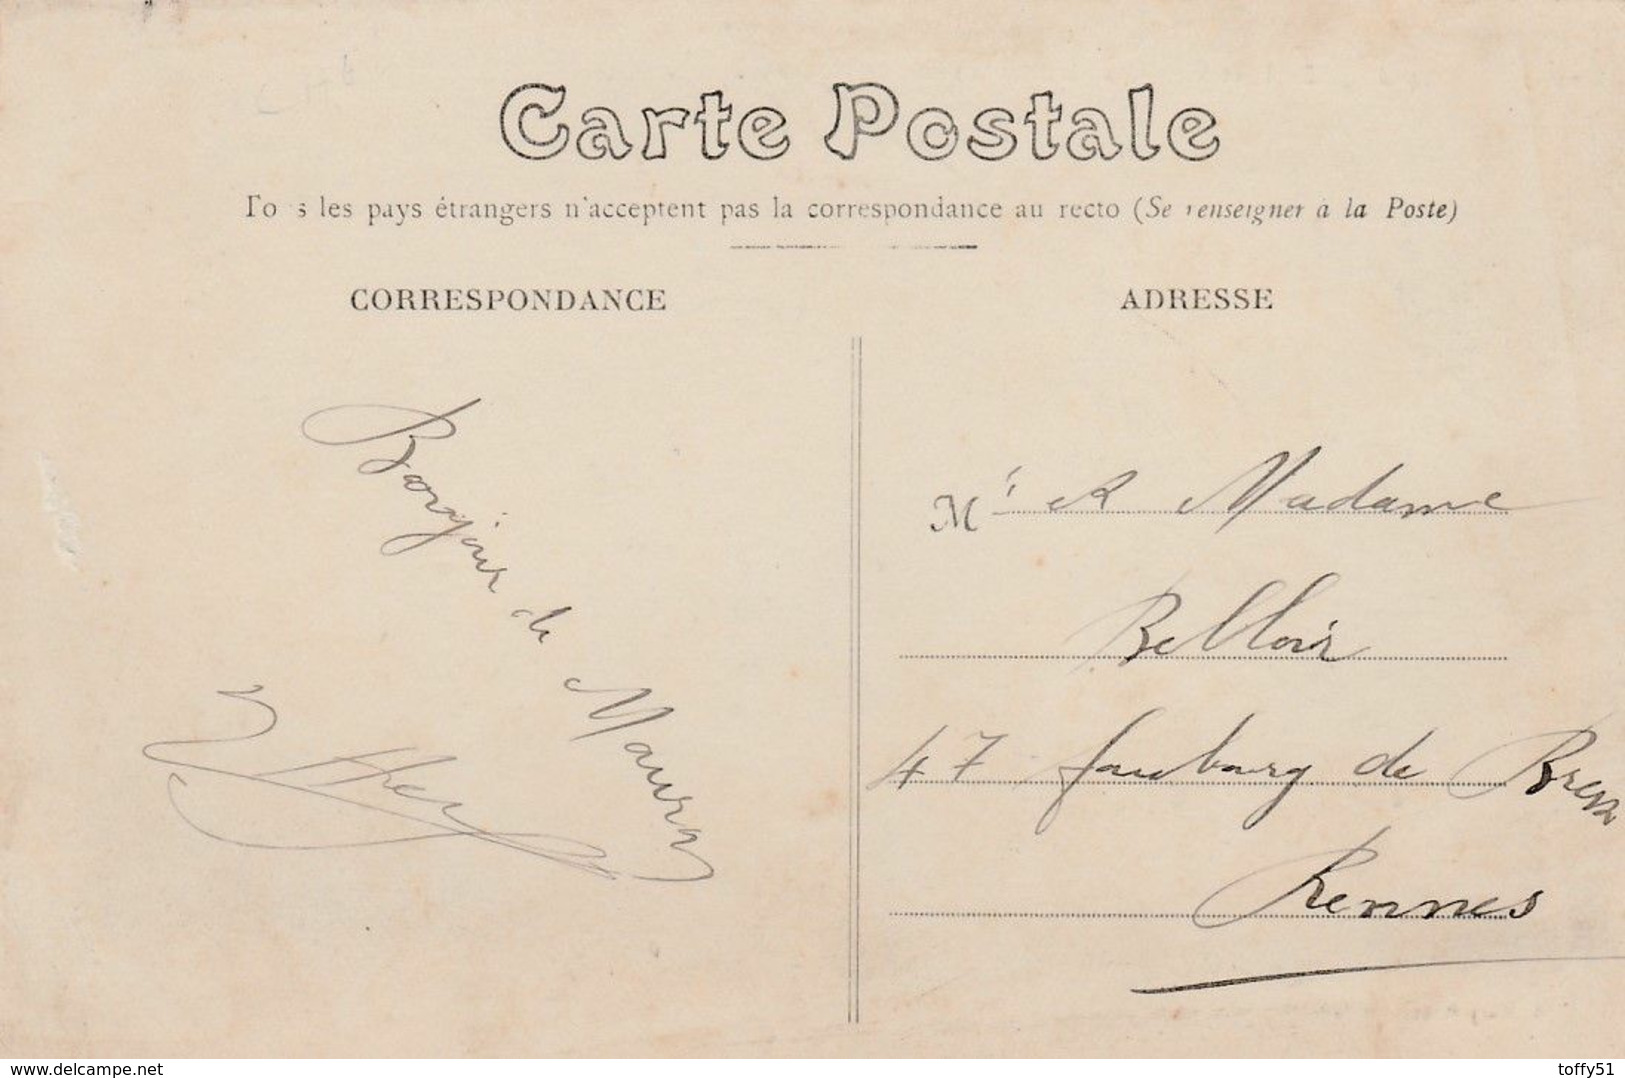 Carte Postale
Tous les pays étrangers n'acceptent pas la correspondance au recto (Se renseigner à la Poste)
CORRESPONDANCE
ADRESSE
Bonjour de Mauron
Mr et Madame
Belloir
47 faubourg de Brest
Rennes
www.delcampe.net
toffy51